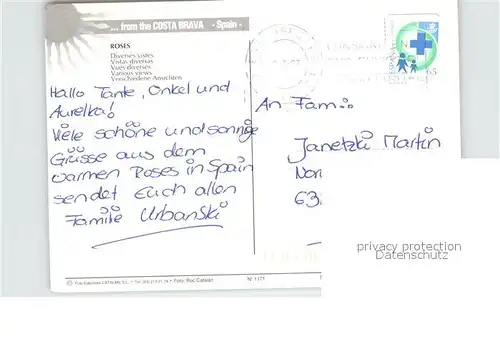 ... from the COSTA BRAVA - Spain -
ROSES
Diverses vistes
Vistas diversas
Vues diverses
Various views
Verschiedene Ansichten
Hallo Tante, Onkel und
Aurelka!
Viele schöne und sonnige
Grüsse aus dem
warmen Roses in Spain
sendet Euch allen
Familie Urbanski
An Fam.
Janetzki Martin
Nor
63
65
privacy protection
Datenschutz
Foto: Roc Catalán
Nº 1171